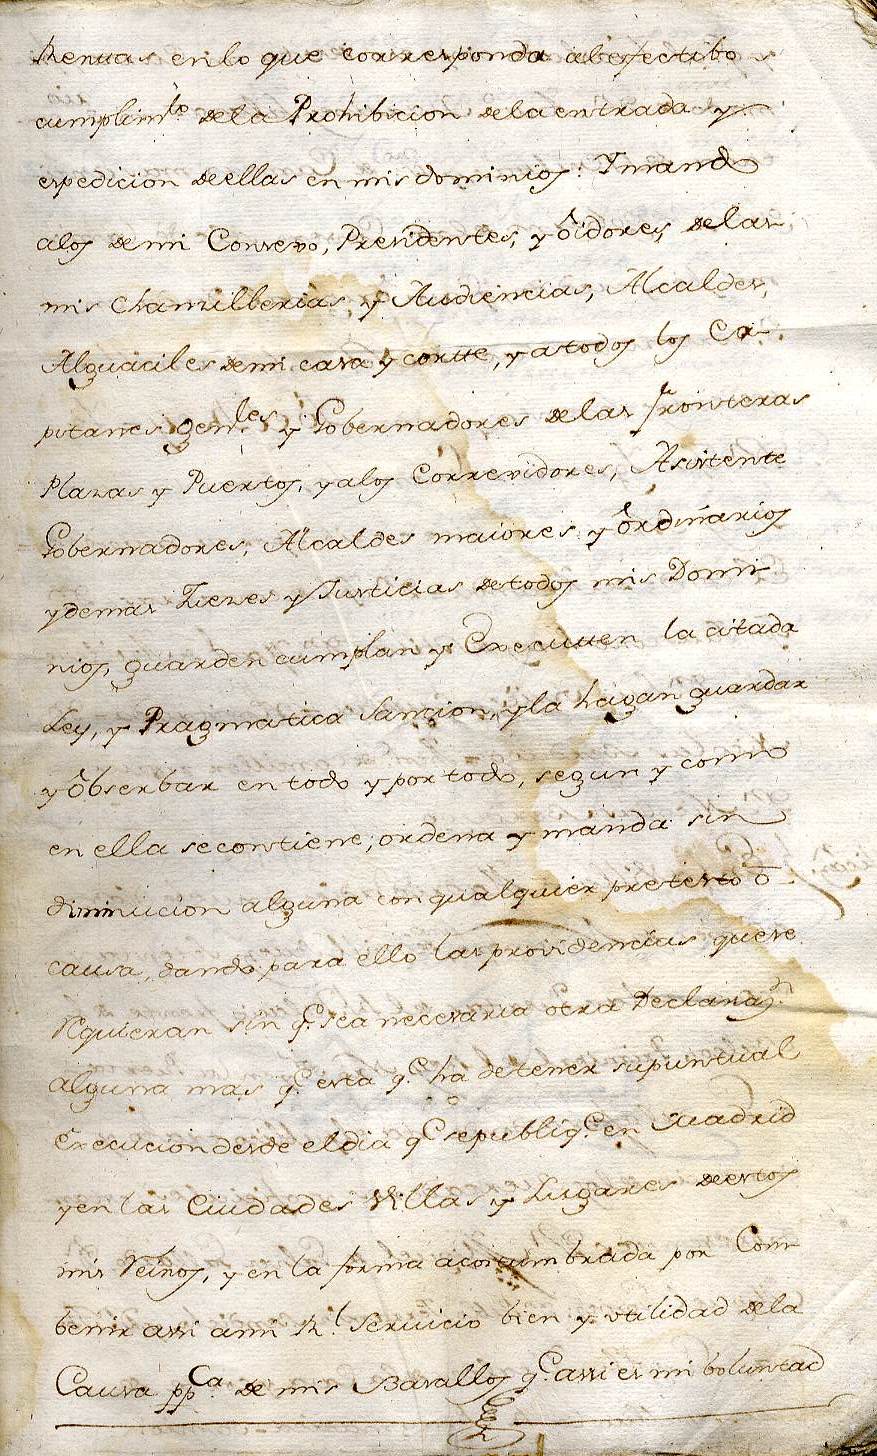 Rentas en lo que corresponda al efectibo
cumplimto de la Prohibicion de la entrada y
espedicion de ellas en mis dominios: Y mando
a los de mi Consexo, Presidentes, y ôidores, de las
mis Chanzillerias, y Audiencias, Alcaldes,
Alguaciles de mi casa y corte, y a todos los Ca-
pitanes genles y Gobernadores de las fronteras
Plazas y Puertos, y a los Correxidores, Asistente
Gobernadores, Alcaldes maiores y ôrdinarios
y demas Juezes y Justicias de todos mis Domi
nios, guarden cumplan y Executten la citada
Ley, y Pragmatica Sancion, y la hagan guardar
y ôbserbar en todo y por todo, segun y como
en ella se contiene, ordena y manda sin
diminucion alguna con qualquier pretexto ô
causa, dando para ello las providencias que se
requieran sin qe sea necesaria otra Declarazn
alguna mas qe esta qe ha de tener su puntual
Execucion desde el dia qe se publiqe en Madrid
y en las Ciudades Villas y Lugares de estos
mis Reinos, y en la forma acostumbrada por Com-
benir assi a mi Rl Servicio bien y utilidad de la
Causa ppca de mis Basallos qe assi es mi boluntad